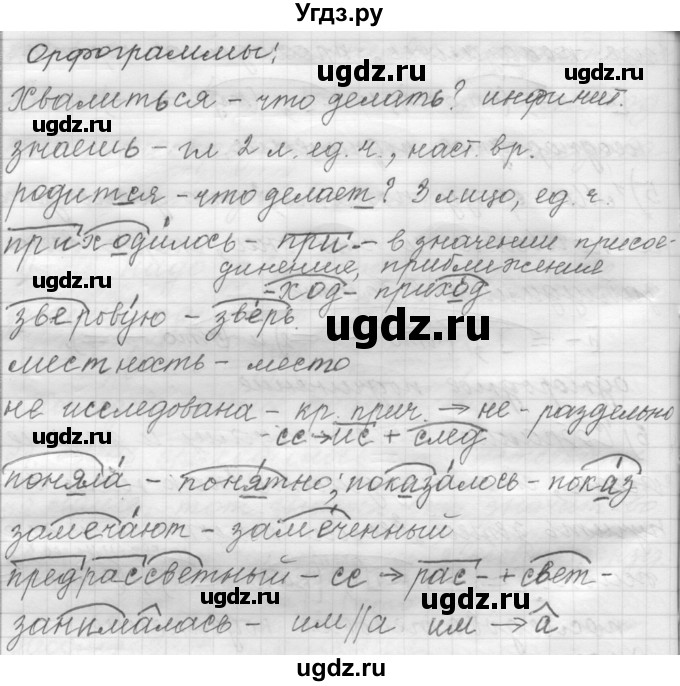 Угдз.ру
Орфограммы:
Хвалиться – что делать? инфинит.
знаешь – гл. 2 л. ед. ч., наст. вр.
родится – что делает? 3 лицо, ед. ч.
приходилось – при- – в значении присое-
динение, приближения
-ход- приход
зверовую – зверь.
местность – место
не исследована – кр. прич. → не - раздельно
- сс → ис + след
поняла – понятно; показалось – показ
замечают – замеченный
предрассветный – сс → рас- + свет-
занималась – им//а им → а
ugdz.ru
ugdz.ru
ugdz.ru
ugdz.ru
ugdz.ru
ugdz.ru
ugdz.ru
ugdz.ru
ugdz.ru
ugdz.ru
ugdz.ru
ugdz.ru
ugdz.ru
ugdz.ru